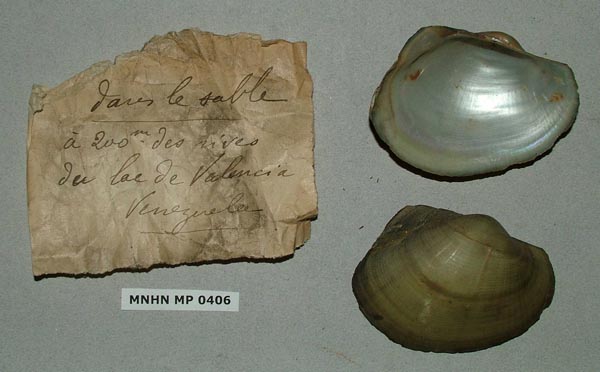 dans le sable
à 200 m. des rives
du lac de Valencia
Venezuela
MNHN MP 0406